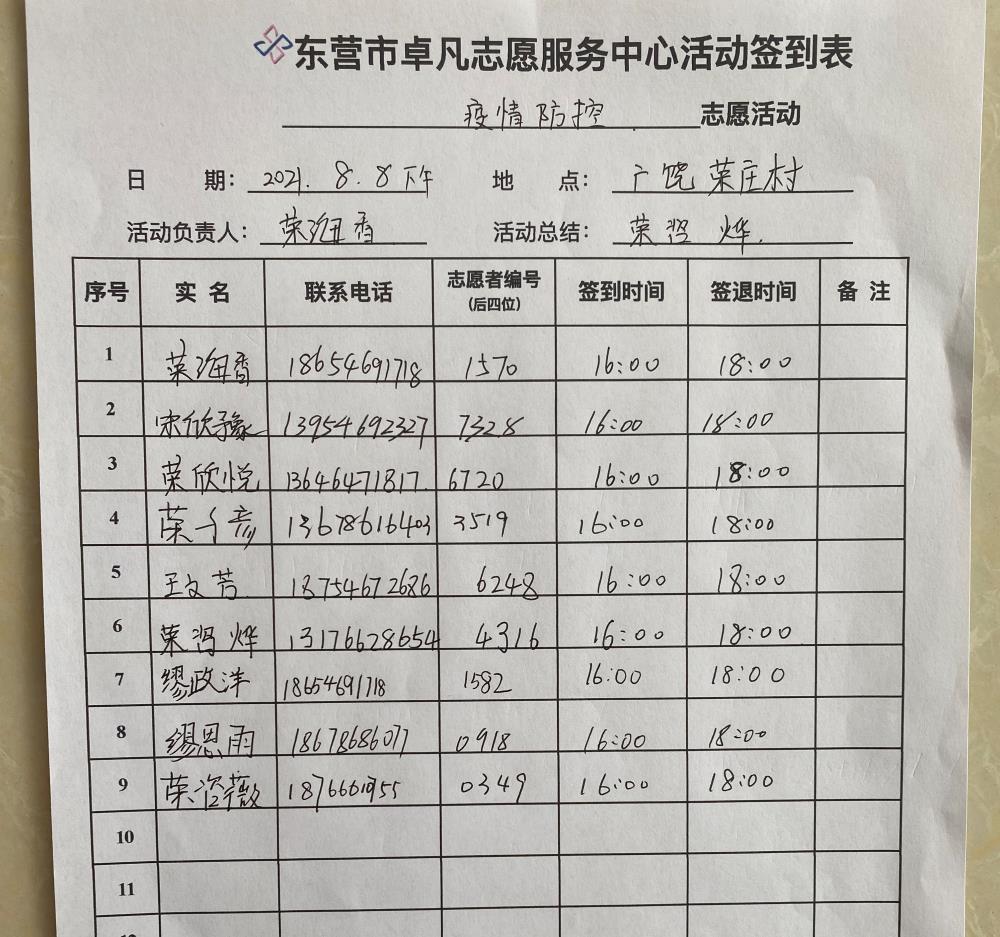 东营市卓凡志愿服务中心活动签到表
疫情防控 志愿活动
日 期: 2021.8.8下午 地 点: 广饶荣庄村
活动负责人: 荣海香 活动总结: 荣 烨.
序号 实名 联系电话 志愿者编号(后四位) 签到时间 签退时间 备注
1 荣海香 18654691718 1570 16:00 18:00
2 宋欣豫 13954692327 7328 16:00 18:00
3 荣欣悦 13646471817 6720 16:00 18:00
4 荣千彦 13678616403 3519 16:00 18:00
5 王文芳 18754672686 6248 16:00 18:00
6 荣 烨 13176628654 4316 16:00 18:00
7 缪政洋 18654691718 1582 16:00 18:00
8 缪思雨 18678686077 0918 16:00 18:00
9 荣 薇 0349 16:00 18:00
10
11